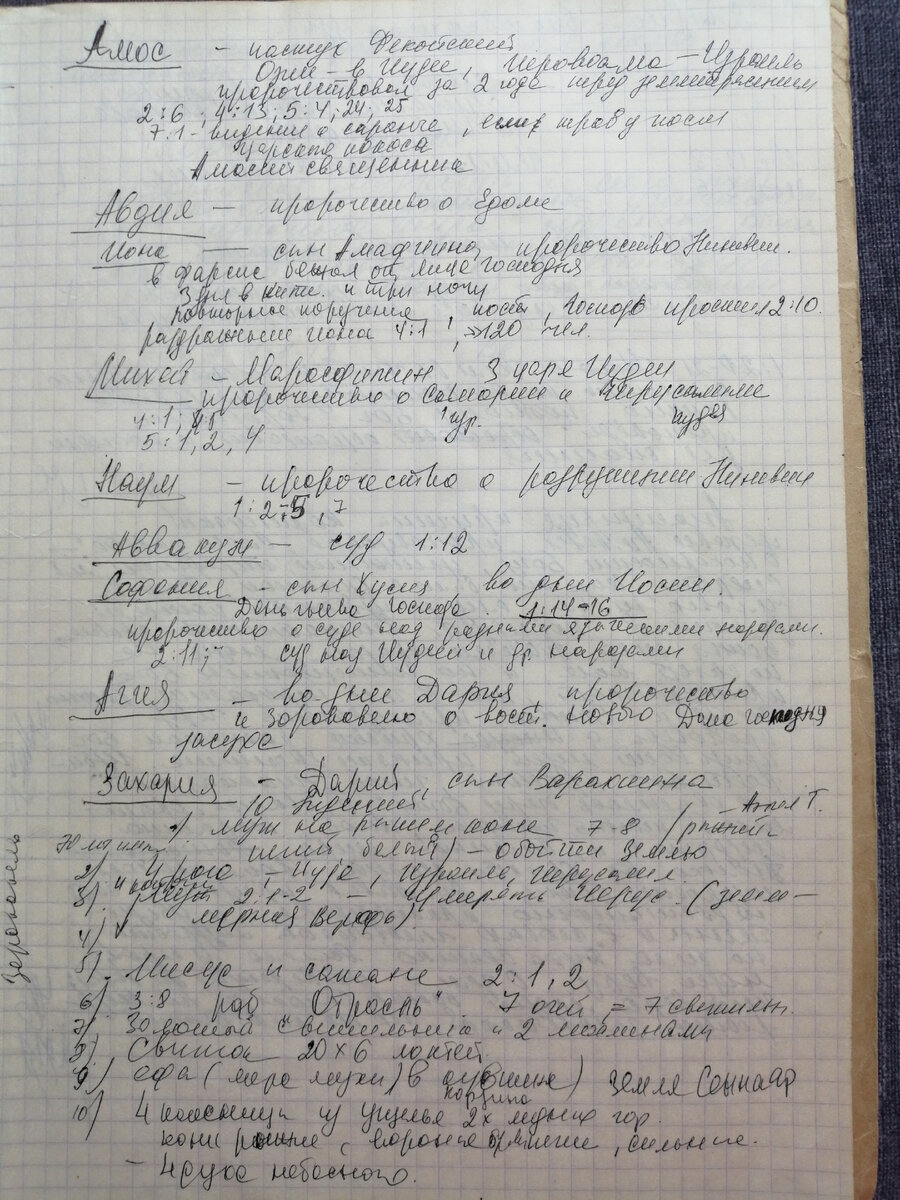 Амос - пастух Фекойский
Озия - в Иудее, Иеровоама - Израиль
пророчествовал за 2 года перед землетрясением
2:6, 4:13; 5:4, 24; 25
7:1 - видение о саранче, траву после
царского покоса
Амасия священник
Авдия - пророчество о Едоме
Иона - сын Амафиина, пророчество Ниневии.
в Фарсис бежал от лица Господня
3 дня в ките. и три ночи
повторное поручение, пост, Господь 2:10.
раздражение Иона 4:1, >120 чел.
Михей - Морасфитин 3 царя Иудеи
пророчество о Самарии и Иерусалиме
4:1, Изр. Иудея
5:1, 2, 4
Наум - пророчество о разрушении Ниневии
1:2-5, 7
Аввакум - суд 1:12
Софония - сын Хусия, во дни Иосии.
День гнева Господа. 1:14-16
пророчество о суде над разными языческими народами.
2:11; - суд над Иудеей и др. народами
Аггия - во дни Дария, пророчество
к Зоровавелю о восст. нового Дома Господня
засуха
Захария - Дарий, сын Варахиина
10 видений
1) муж на рыжем коне 7-8 (рыжий,
пегий белый) - обойти землю
70 лет
2) 4 рога - Иуда, Израиль, Иерусалим.
3) муж 2:1-2 - Измерять Иерус. (земле-
4) мерная вервь)
5) Иисус и сатана 2:1, 2
6) 3:8 раб "Отрасль" 7 очей = 7 светильн.
7) Золотой светильник и 2 маслинами
8) Свиток 20 х 6 локтей
9) ефа (мера муки) в земля Сеннаар
корзина
10) 4 колесницы из ущелья 2х медных гор
кони рыжие, вороные, сильные.
- 4 духа небесного.